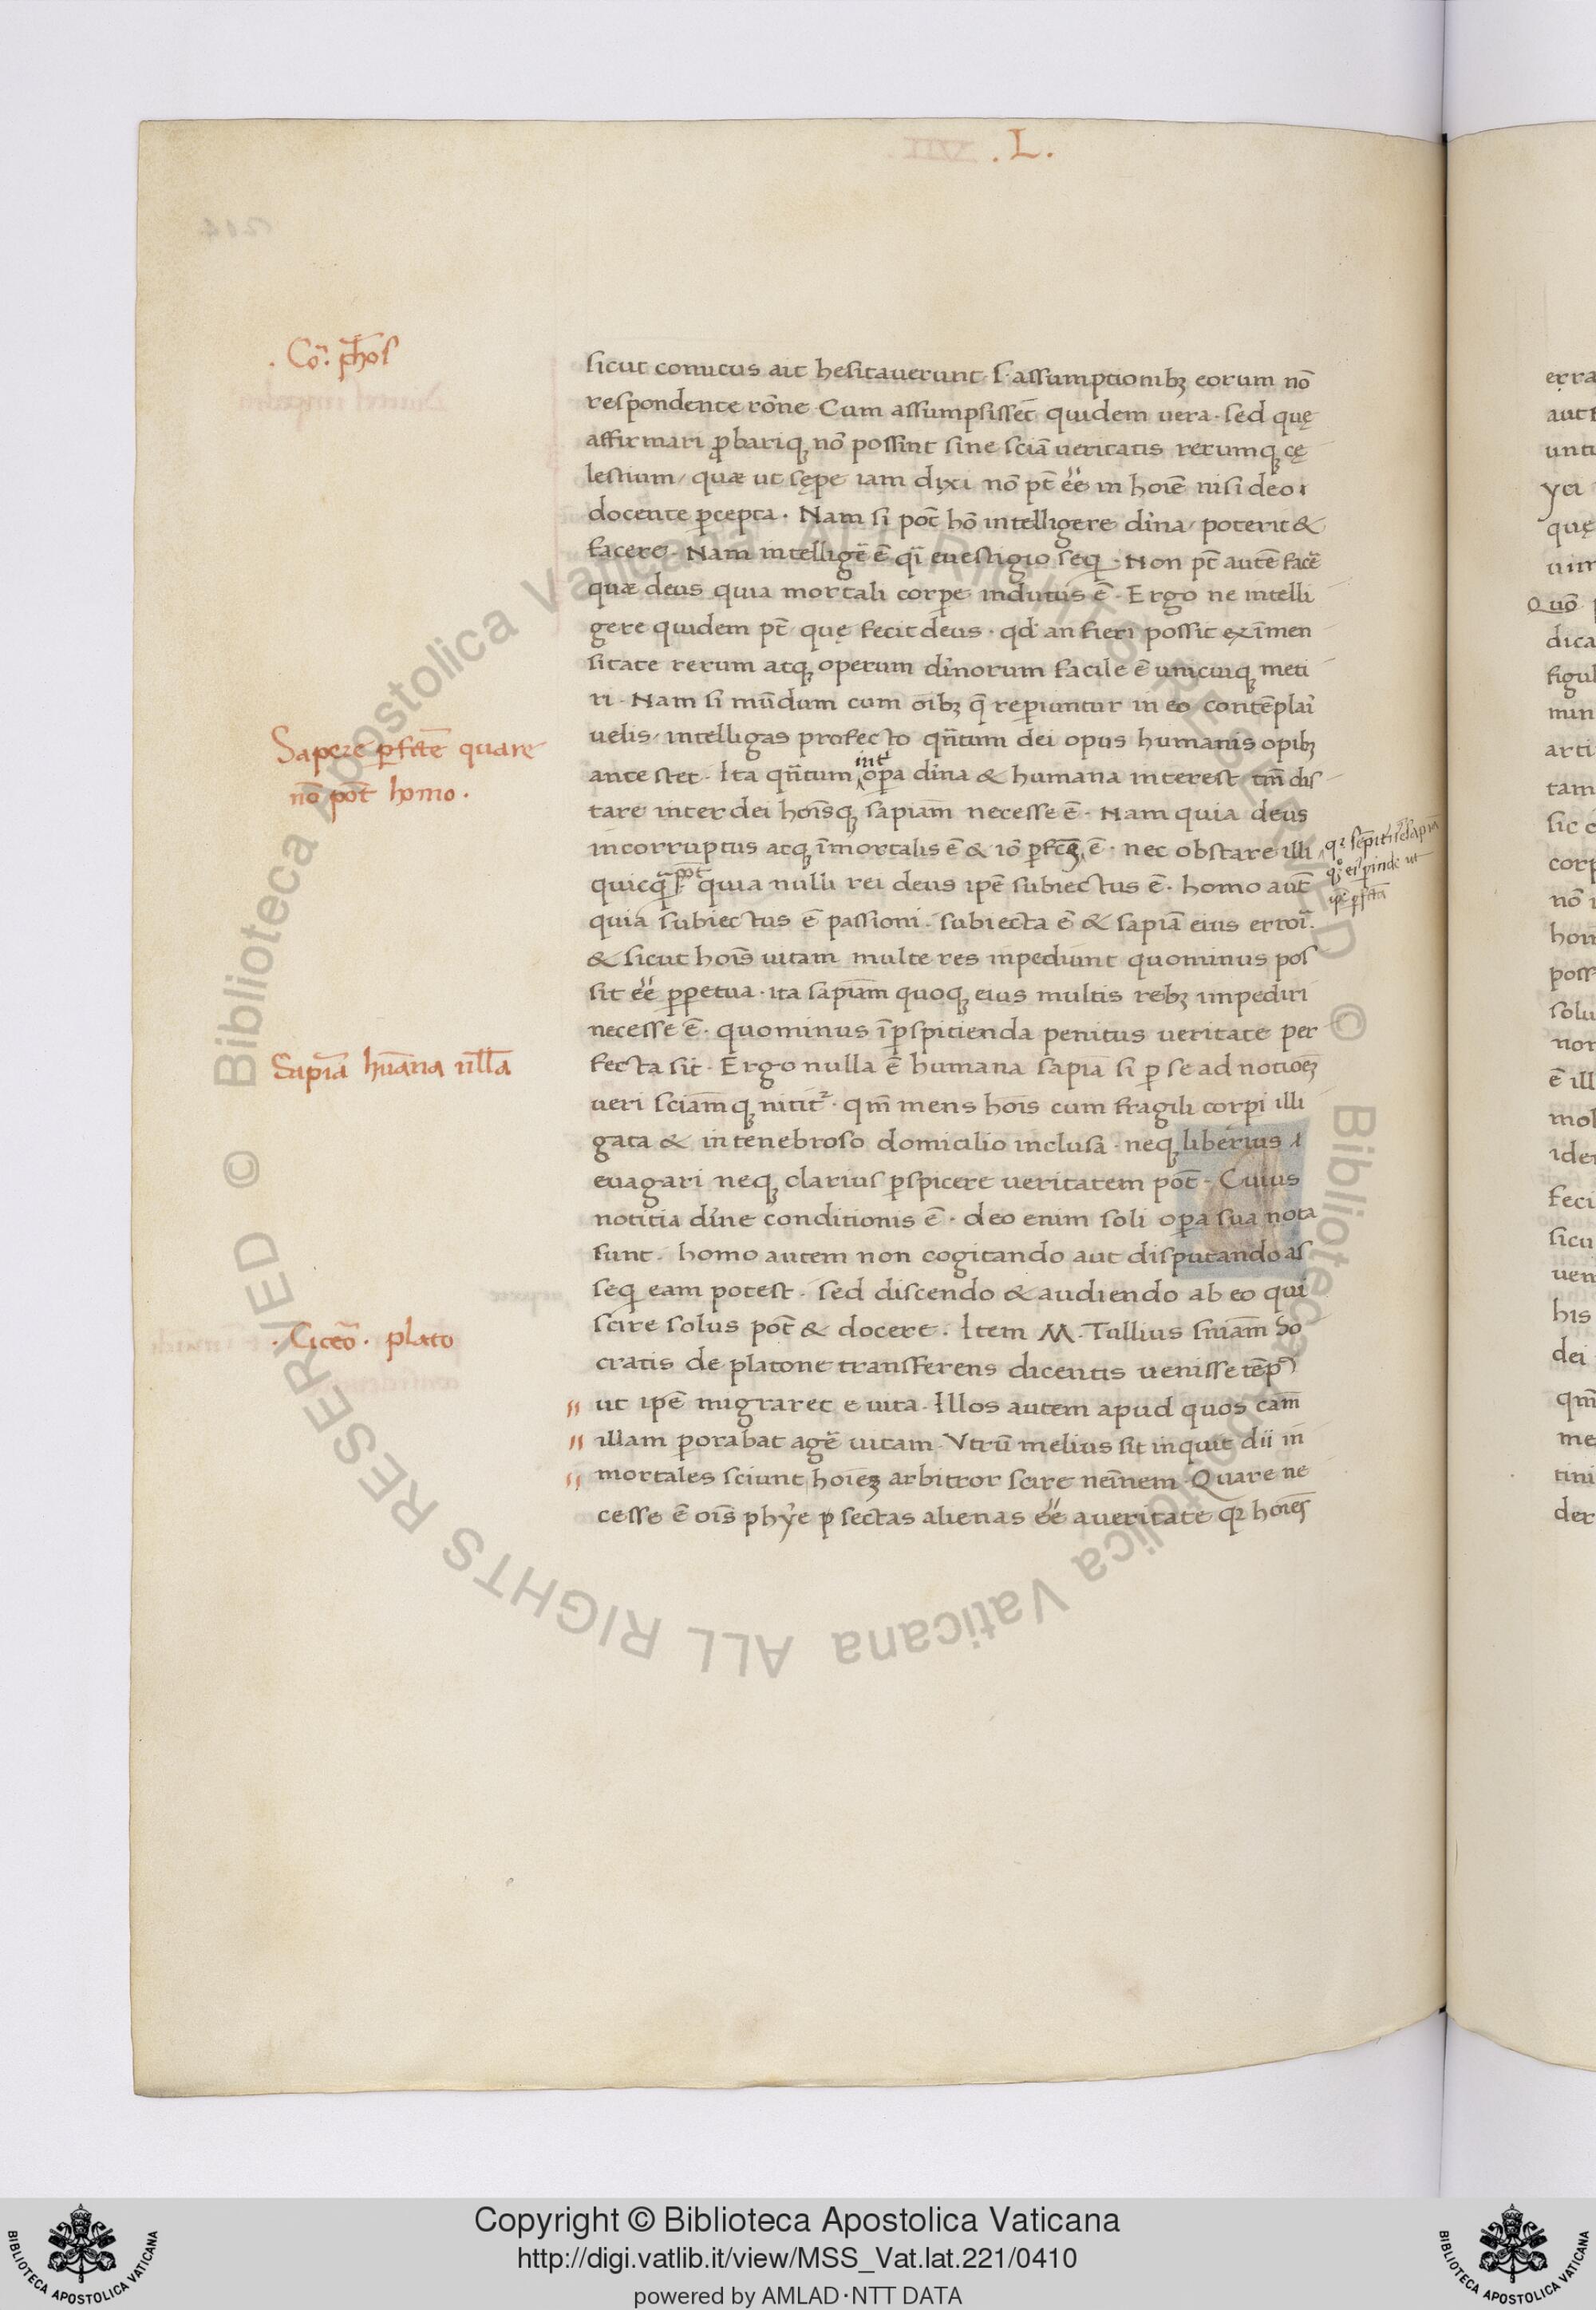 . L.
. Cõ: ph̃os
sicut comicus ait hesitauerunt · s· assumptionibꝫ eorum nõ
respondente rõne · Cum assumpsisset̃ quidem uera · sed quę
affirmari ꝓbariqꝫ nõ possint sine sciã ueritatis rerumqꝫ cę
lestium / quæ ut sępe iam dixi nõ pt̃ eẽ in hoiẽ nisi deo
docente ꝑcepta · Nam si pot̃ hõ intelligere diĩna / poterit &
facere · Nam intelligẽ ẽ qĩ euestigio seqꝫ · Non pt̃ autẽ facẽ
quæ deus quia mortali corꝑe indutus ẽ · Ergo ne intelli
gere quidem pt̃ quę fecit deus · qd̃ an fieri possit ex ĩmen
sitate rerum atqꝫ operum diĩnorum facile ẽ unicuiqꝫ meti
ri · Nam si mũdum cum oĩbꝫ q̃ reperiuntur in eo contẽplai
Sapere ꝑfcte quare
nõ pot̃ homo ·
uelis / intelligas profecto qñtum dei opus humanis opibꝫ
ante stet · Ita qñtum int̃ oꝑa diĩna & humana interest tm̃ dis
tare inter dei hoĩsqꝫ sapiam̃ necesse ẽ · Nam quia deus
incorruptus atqꝫ ĩmortalis ẽ & iõ ꝑfcꝫ ẽ · nec obstare illi
quicq̃ pot̃ quia nulli rei deus ipẽ subiectus ẽ · homo aut̃
quia subiectus ẽ passioni · subiecta ẽ & sapiã eius erroĩ ·
& sicut hoĩs uitam multe res inpediunt quominus pos
sit eẽ ꝑpetua · ita sapiam̃ quoqꝫ eius multis rebꝫ impediri
necesse ẽ · quominus ĩ ꝑspicienda penitus ueritate per
Sapiã hũana nll̃a
fecta sit · Ergo nulla ẽ humana sapia si ꝑ se ad notioeꝫ
ueri sciam̃qꝫ nitit᷑ · qm̃ mens hoĩs cum fragili corpi illi
gata & in tenebroso domicilio inclusa · neqꝫ liberius
euagari neqꝫ clarius ꝑspicere ueritatem pot̃ · Cuius
notitia diĩne conditionis ẽ · deo enim soli oꝑa sua nota
sunt · homo autem non cogitando aut disputando as
seqꝫ eam potest · sed discendo & audiendo ab eo qui
. Cicẽo · plato
scire solus pot̃ & docere · Item M · Tullius sñiam So
cratis de platone transferens dicentis uenisse tẽp
ut ipẽ migraret e uita · Illos autem apud quos cam̃
illam ꝑorabat agẽ uitam · Vtrũ melius sit inquit dii in
mortales sciunt hoieꝫ arbitror scire neĩnem · Quare ne
cesse ẽ oĩs phỹe ꝑ sectas alienas eẽ a ueritate qꝛ hoies̃
Copyright © Biblioteca Apostolica Vaticana
http://digi.vatlib.it/view/MSS_Vat.lat.221/0410
powered by AMLAD·NTT DATA